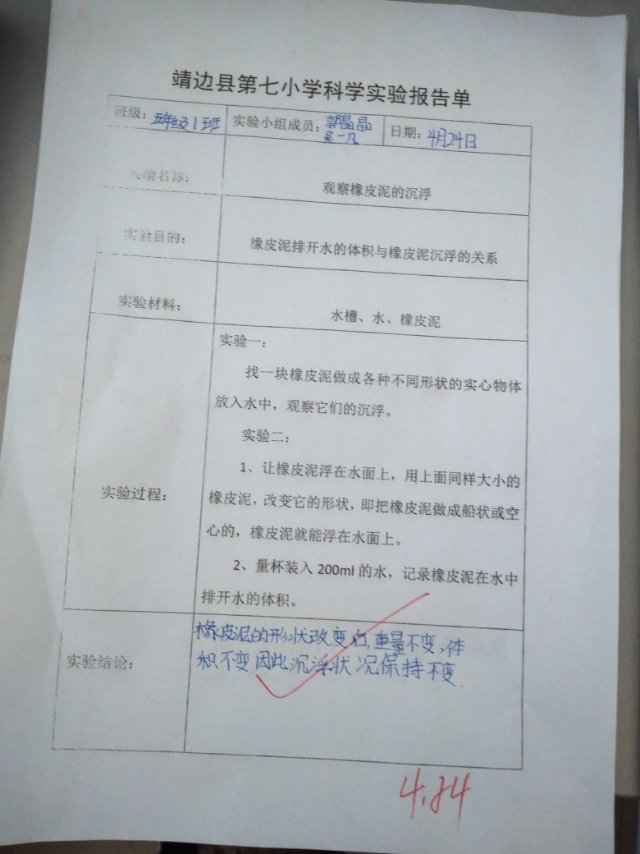 靖边县第七小学科学实验报告单
班级：五年级1班 实验小组成员：郭晶晶 吴一凡 日期：4月24日
实验名称： 观察橡皮泥的沉浮
实验目的： 橡皮泥排开水的体积与橡皮泥沉浮的关系
实验材料： 水槽、水、橡皮泥
实验过程：
实验一：
找一块橡皮泥做成各种不同形状的实心物体
放入水中，观察它们的沉浮。
实验二：
1、让橡皮泥浮在水面上，用上面同样大小的
橡皮泥，改变它的形状，即把橡皮泥做成船状或空
心的，橡皮泥就能浮在水面上。
2、量杯装入 200ml 的水，记录橡皮泥在水中
排开水的体积。
实验结论：
橡皮泥的形状改变，重量不变，体
积不变因此沉浮状况保持不变
4.24